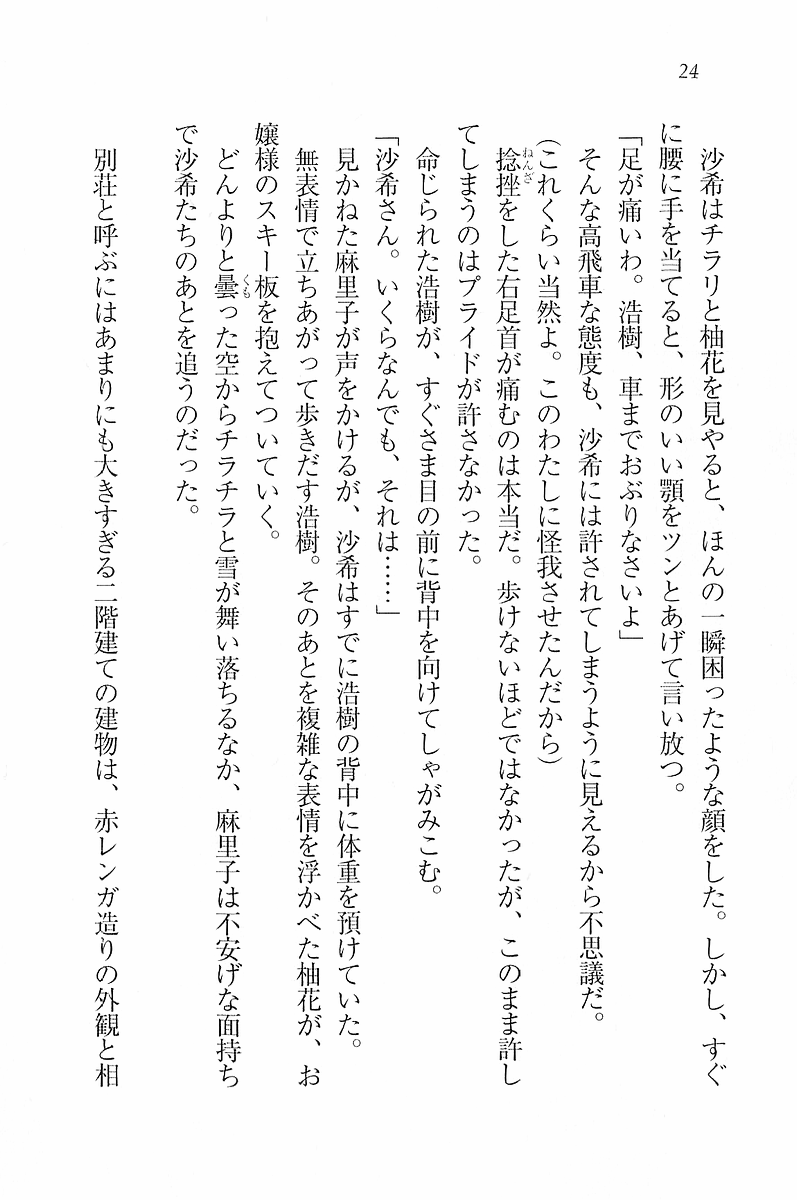 24
沙希はチラリと柚花を見やると、ほんの一瞬困ったような顔をした。しかし、すぐ
に腰に手を当てると、形のいい顎をツンとあげて言い放つ。
「足が痛いわ。浩樹、車までおぶりなさいよ」
そんな高飛車な態度も、沙希には許されてしまうように見えるから不思議だ。
(これくらい当然よ。このわたしに怪我させたんだから)
捻挫をした右足首が痛むのは本当だ。歩けないほどではなかったが、このまま許し
ねんざ
てしまうのはプライドが許さなかった。
命じられた浩樹が、すぐさま目の前に背中を向けてしゃがみこむ。
「沙希さん。いくらなんでも、それは……」
見かねた麻里子が声をかけるが、沙希はすでに浩樹の背中に体重を預けていた。
無表情で立ちあがって歩きだす浩樹。そのあとを複雑な表情を浮かべた柚花が、お
嬢様のスキー板を抱えてついていく。
どんよりと曇った空からチラチラと雪が舞い落ちるなか、麻里子は不安げな面持ち
くも
で沙希たちのあとを追うのだった。
別荘と呼ぶにはあまりにも大きすぎる二階建ての建物は、赤レンガ造りの外観と相